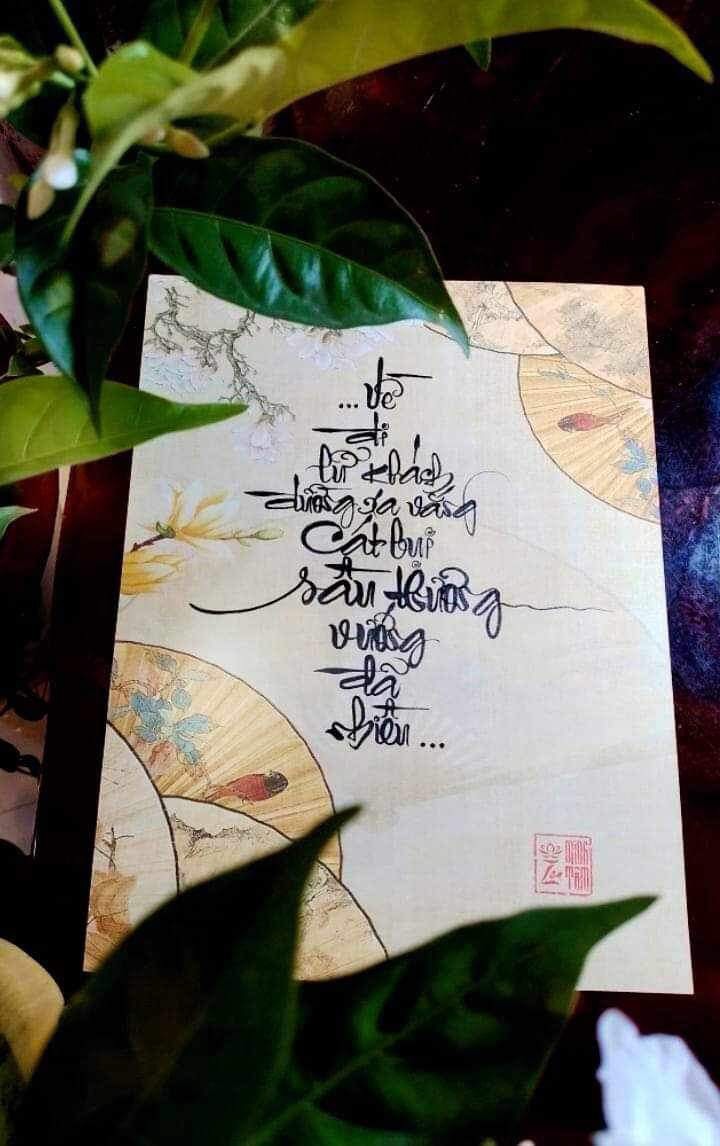 ...Về
đi
lữ khách
đường xa vắng
Cát bụi
sầu thương
vướng
đã
nhiều...
Định
Tâm